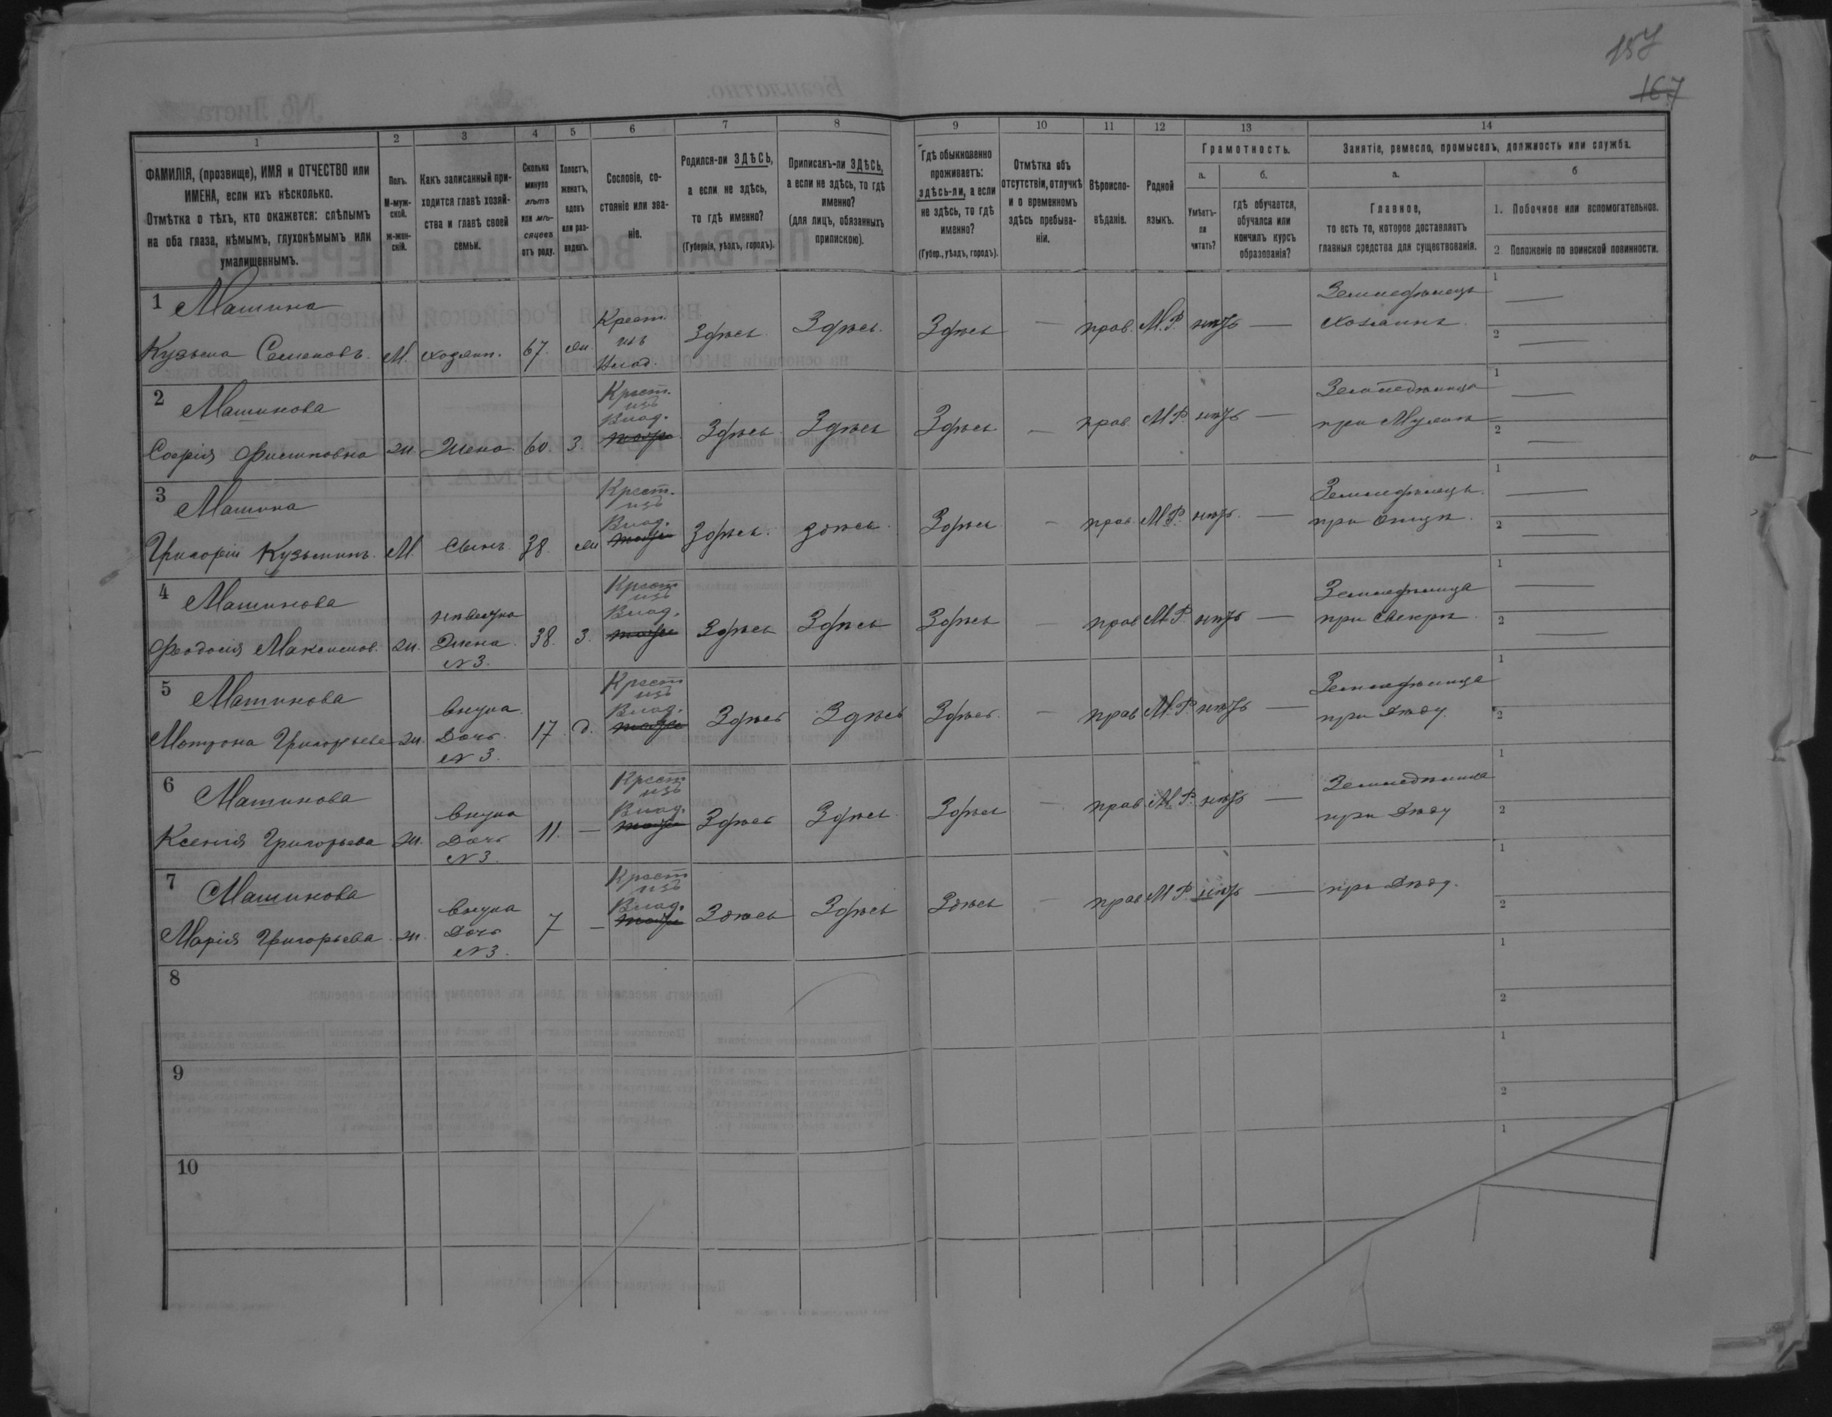 157
167
1
2
3
4
5
6
7
8
9
10
11
12
13
14
ФАМИЛІЯ, (прозвище), ИМЯ и ОТЧЕСТВО или
ИМЕНА, если ихъ нѣсколько.
Отмѣтка о тѣхъ, кто окажется: слѣпымъ
на оба глаза, нѣмымъ, глухонѣмымъ или
умалишеннымъ.
Полъ.
М-муж-
ской.
ж-жен-
скій.
Какъ записанный при-
ходится главѣ хозяй-
ства и главѣ своей
семьи.
Сколько
минуло
лѣтъ
или мѣ-
сяцевъ
отъ роду.
Холостъ,
женатъ,
вдовъ
или раз-
веденъ.
Сословіе, со-
стояніе или зва-
ніе.
Родился-ли ЗДѢСЬ,
а если не здѣсь,
то гдѣ именно?
(Губернія, уѣздъ, городъ).
Приписанъ-ли ЗДѢСЬ,
а если не здѣсь, то гдѣ
именно?
(для лицъ, обязанныхъ
припискою).
Гдѣ обыкновенно
проживаетъ:
здѣсь-ли, а если
не здѣсь, то гдѣ
именно?
(Губер., уѣздъ, городъ).
Отмѣтка объ
отсутствіи, отлучкѣ
и о временномъ
здѣсь пребыва-
ніи.
Вѣроиспо-
вѣданіе.
Родной
языкъ.
Грамотность.
а.
Умѣетъ-
ли
читать?
б.
гдѣ обучается,
обучался или
кончилъ курсъ
образованія?
Занятіе, ремесло, промыселъ, должность или служба.
а.
Главное,
то есть то, которое доставляетъ
главныя средства для существованія.
б
1. Побочное или вспомогательное.
2. Положеніе по воинской повинности.
1 Машина
Кузьма Семеновъ. М. хозяин. 67. жн. Крест. изъ Влад. Здѣсь Здѣсь Здѣсь — прав. М.Р. нѣтъ — Земледѣлецъ хозяинъ. 1 — 2 —
2 Машинова
Софія Филиповна ж. Жена 60 З Крест. изъ Влад. Здѣсь Здѣсь Здѣсь — прав. М.Р. нѣтъ — Земледѣлица при Мужѣ 1 — 2 —
3 Машина
Григорій Кузьминъ. М. Сынъ. 38. жн Крест. изъ Влад. Здѣсь. здѣсь. Здѣсь — прав. М.Р. нѣтъ. — Земледѣлецъ. при Отцѣ. 1 — 2 —
4 Машинова
Феодосія Максимов. ж. невѣстка Жена №3. 38. З. Крест. изъ Влад. Здѣсь Здѣсь Здѣсь — прав. М.Р. нѣтъ — Земледѣлица при Свекрѣ. 1 — 2 —
5 Машинова
Матрона Григорьева ж. Внука Дочь №3. 17 д. Крест. изъ Влад. Здѣсь Здѣсь Здѣсь — прав. М.Р. нѣтъ — Земледѣлица при Дѣду. 1 2
6 Машинова
Ксенія Григорьева ж. Внука Дочь №3. 11. — Крест. изъ Влад. Здѣсь Здѣсь Здѣсь — прав. М.Р. нѣтъ — Земледѣлица при Дѣду 1 2
7 Машинова
Марія Григорьева ж. Внука Дочь №3. 7 — Крест. изъ Влад. Здѣсь Здѣсь Здѣсь — прав. М.Р. нѣтъ — при Дѣду. 1 2
8
1
2
9
1
2
10
1